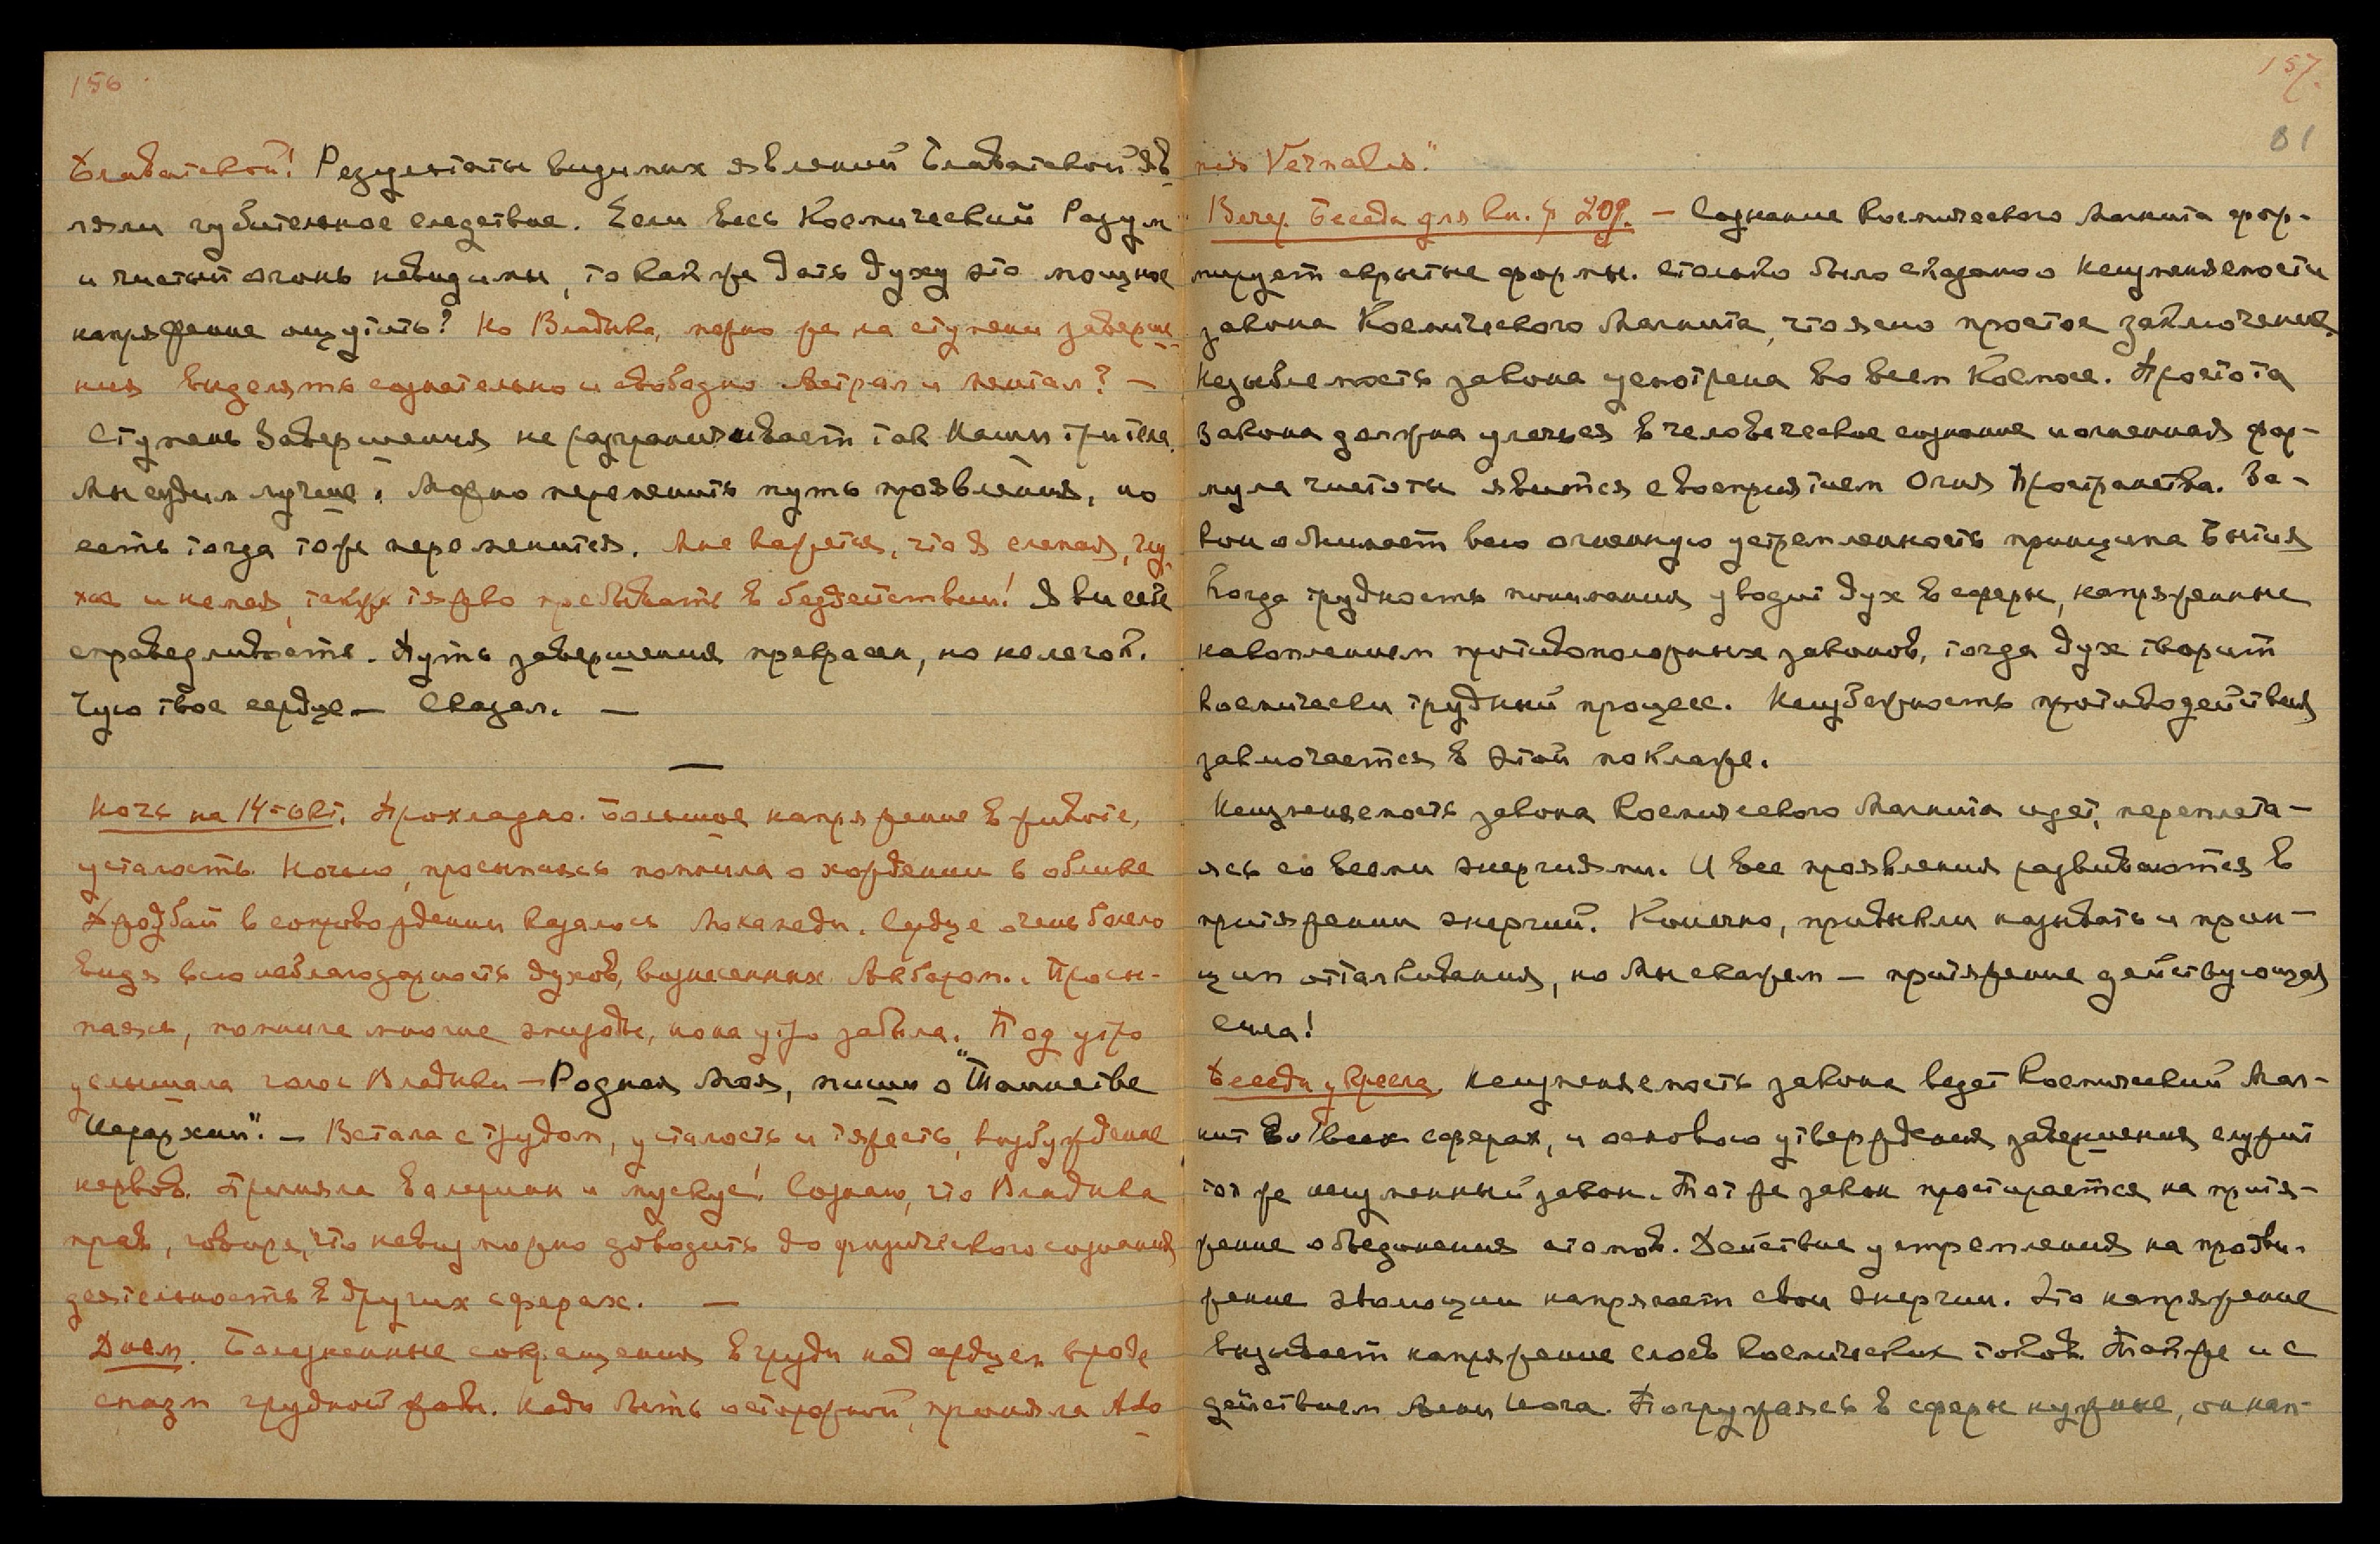 156
Блаватской! Результаты видимых явлений Блаватской яв-
ляли губительное следствие. Если весь Космический Разум
и чистый огонь невидимы, то как же дать духу это мощное
напряжение ощутить? Но Владыка, можно же на ступени заверше-
ния выделять сознательно и свободно Астрал и Ментал? —
Ступень Завершения не разграничивает так Наши три тела.
Мы судим лучше. Можно переменить путь проявления, но
есть тогда тоже переменится. Мне кажется, что я слепая, глу-
хая и немая, также тяжко пребывать в бездействии! Я ви
справедливость. Путь завершения прекрасен, но нелегок.
Чую твое сердце — Сказал. —
Ночь на 14-ое окт. Прохладно. Большое напряжение в животе,
усталость. Ночью, просыпаясь помнила о хождении в облике
Джодбай в сопровождении казалось Моханеды. Сердце очень болело
видя всю неблагодарность духов, вознесенных Акбаром. Просы-
паясь, помнила многие эпизоды, но на утро забыла. Под утро
услышала голос Владыки — Родная Моя, пиши о "Таинстве
Иерархии". — Встала с трудом, усталость и тяжесть, возбуждение
нервов. Приняла валериан и мускус! Сознаю, что Владыка
прав, говоря, что невозможно доводить до физического сознания
деятельность в других сферах. —
Днем. Болезненные сокращения в груди над сердцем вроде
спазм грудной жабы. Надо быть осторожной, приняла Ado-
157.
81
nis Vernalis."
Вечер. Беседа для кн. § 209. — Сознание Космического Магнита фор-
мирует скрытые формы. Столько было сказано о неизменяемости
закона Космического Магнита, что ясно простое заключение.
Незыблемость закона усмотрена во всем Космосе. Простота
Закона должна улечься в человеческое сознание и огненная фор-
мула чистоты явится с восприятием Огня Пространства. За-
кон обнимает всю огненную устремленность принципа Бытия
Когда трудность понимания уводит дух в сферы, напряженные
накоплением противоположных законов, тогда дух творит
космически трудный процесс. Неизбежность противодействия
заключается в этой поклаже.
Неизменяемость закона Космического Магнита идет, переплета-
ясь со всеми энергиями. И все проявления развиваются в
притяжении энергий. Конечно, привыкли называть и прин-
цип отталкивания, но Мы скажем — притяжение действующая
сила!
Беседа у кресла. Неизменяемость закона ведет Космический Маг-
нит во всех сферах, и основою утверждения завершения служит
тот же неизменный закон. Тот же закон простирается на притя-
жение объединения атомов. Действие устремления на продви-
жение эволюции напрягает свои энергии. Это напряжение
вызывает напряжение слоев космических токов. Так же и с
действием Агни Йога. Погружаясь в сферы нужные, он нап-